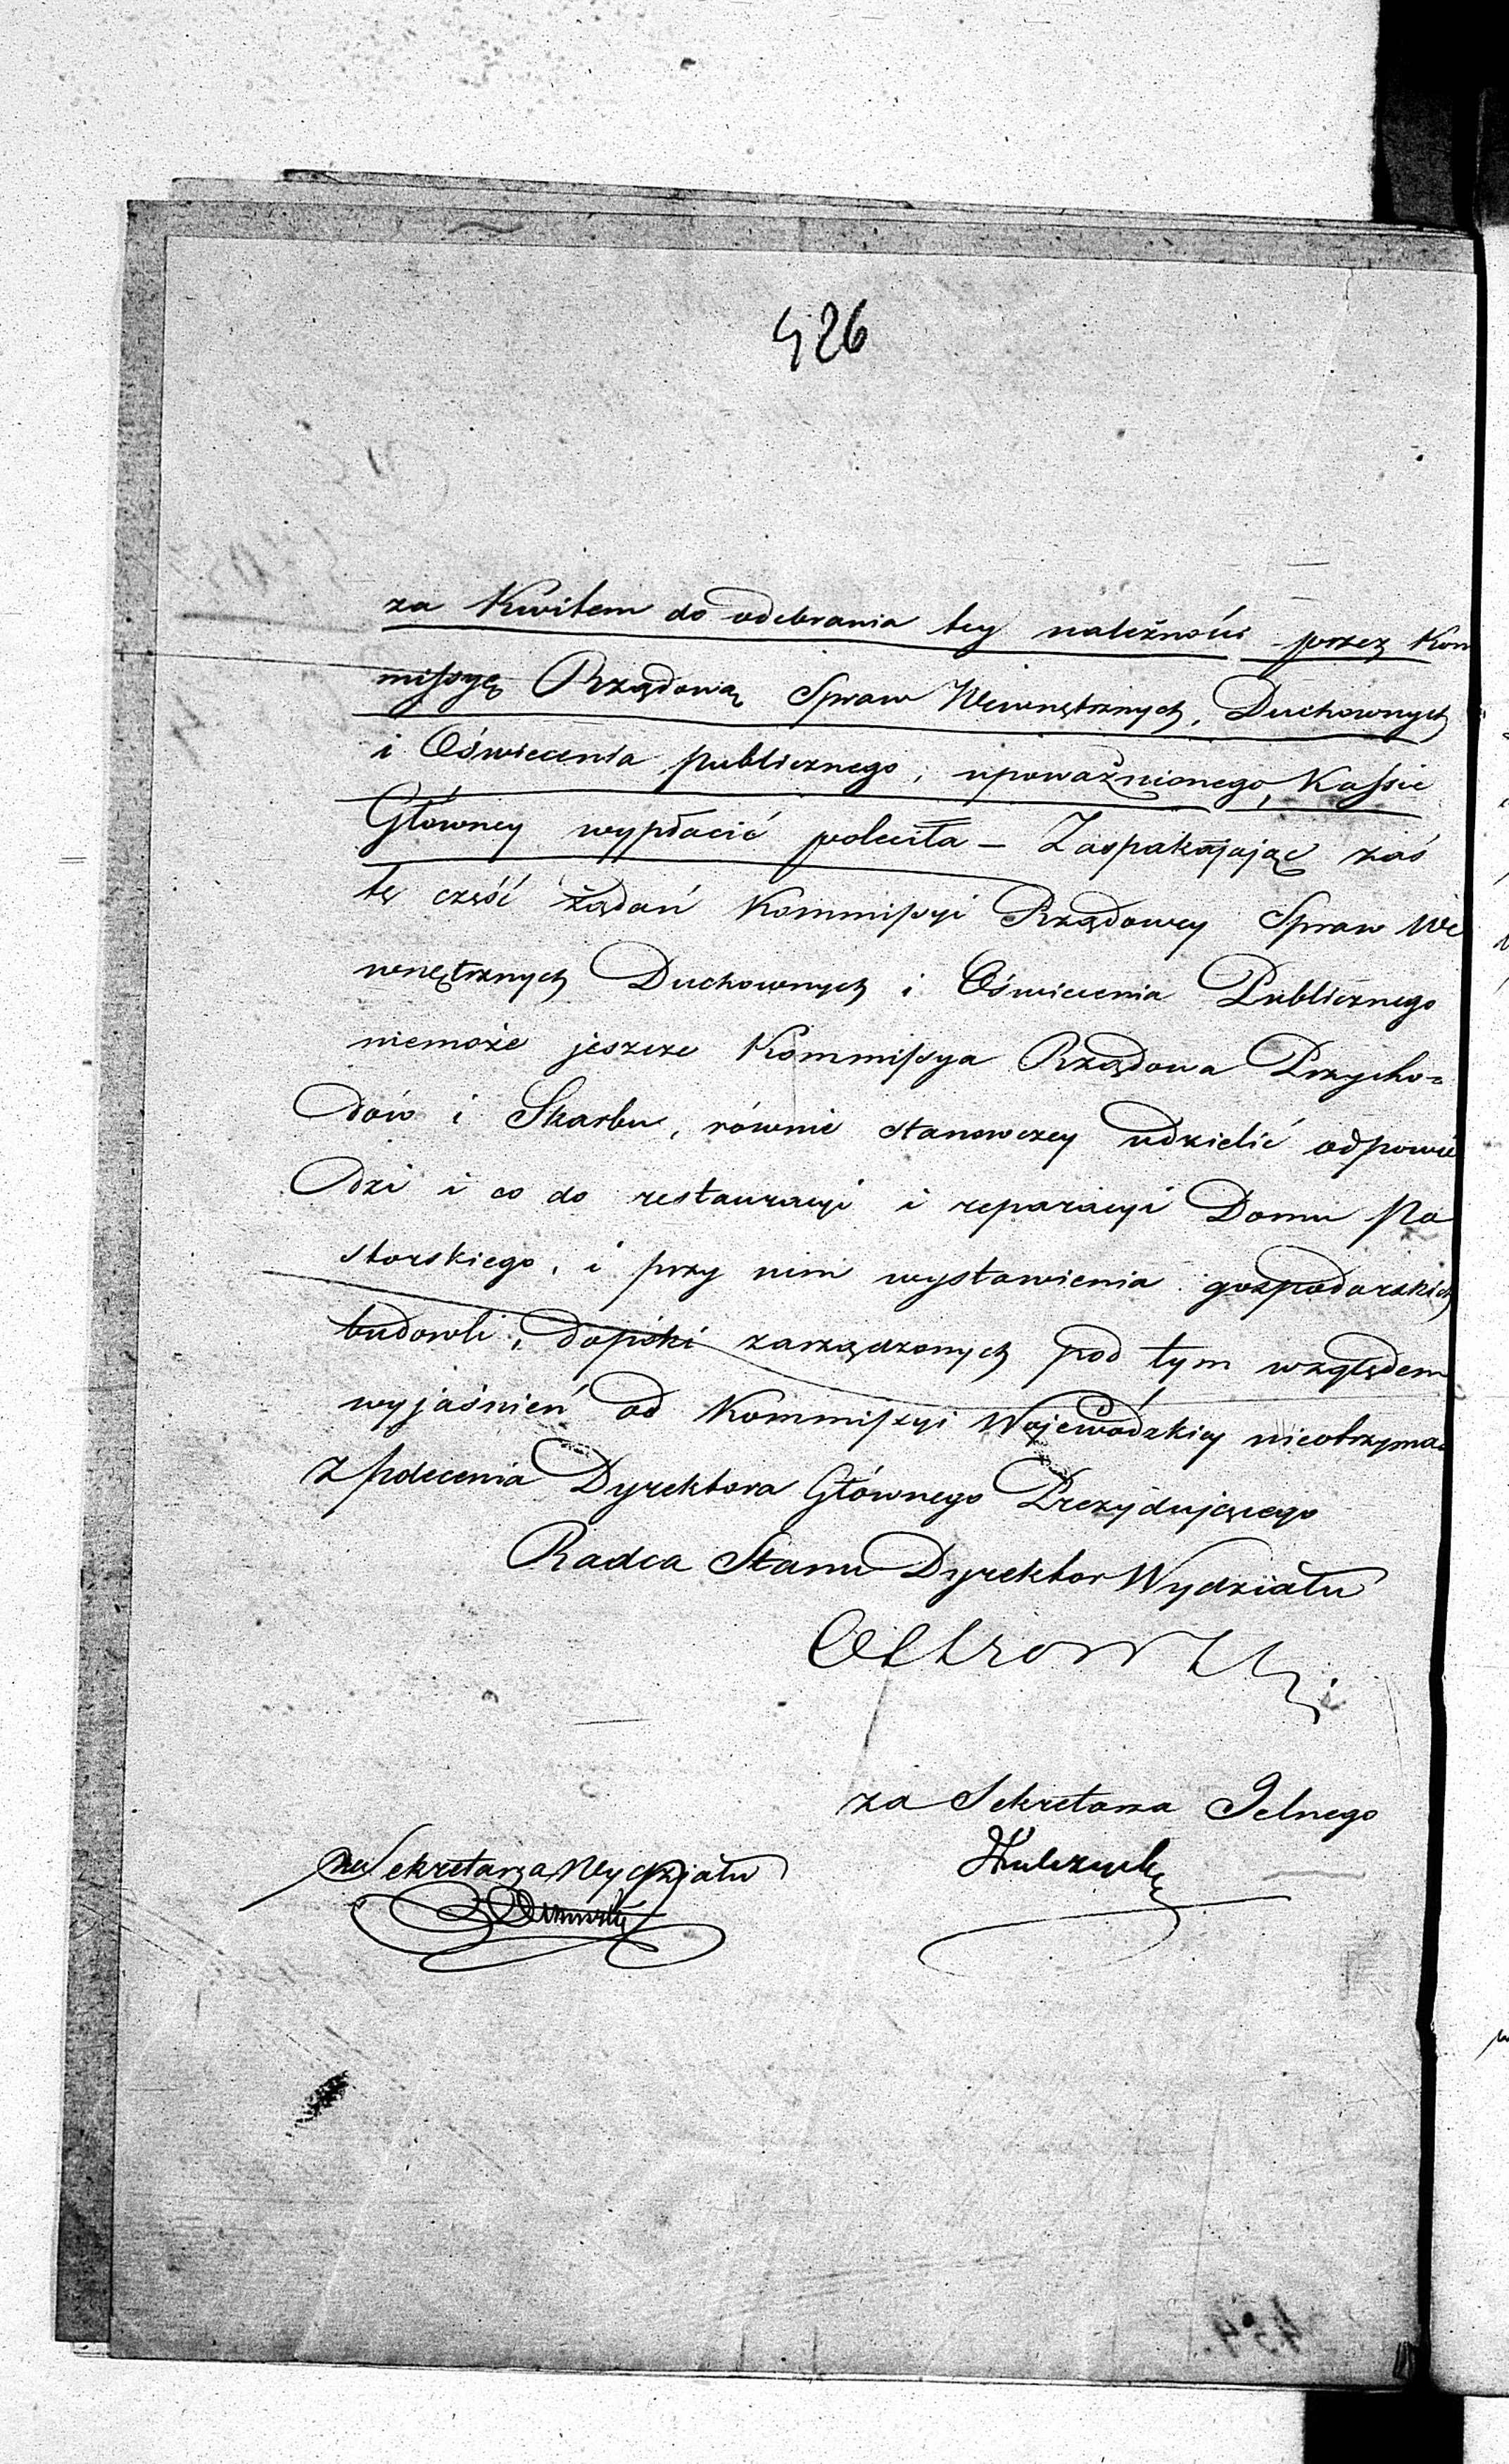 426
za Kwitem do odebrania tey należności przez Kom
missyę Rządową Spraw Wewnętrznych, Duchownych
i Oświecenia publicznego, upoważnionego, Kassie
Główney wypłacić poleciła – Zaspakajając zaś
tę część żądań Kommissyi Rządowey Spraw We
wnętrznych Duchownych i Oświecenia Publicznego
niemoże jeszcze Kommissya Rządowa Przycho=
dów i Skarbu, równie stanowczey udzielić odpowie
dzi i co do restauracyi i reparacyi Domu Pa
storskiego, i przy nim wystawienia gospodarskich
budowli, dopóki zarządzonych pod tym względem
wyjaśnień od Kommissyi Wojewódzkiey nieotrzyma
z polecenia Dyrektora Głównego Prezydującego
Radca Stanu Dyrektor Wydziału
za Sekretarza Jelnego
za Sekretarza Wydziału